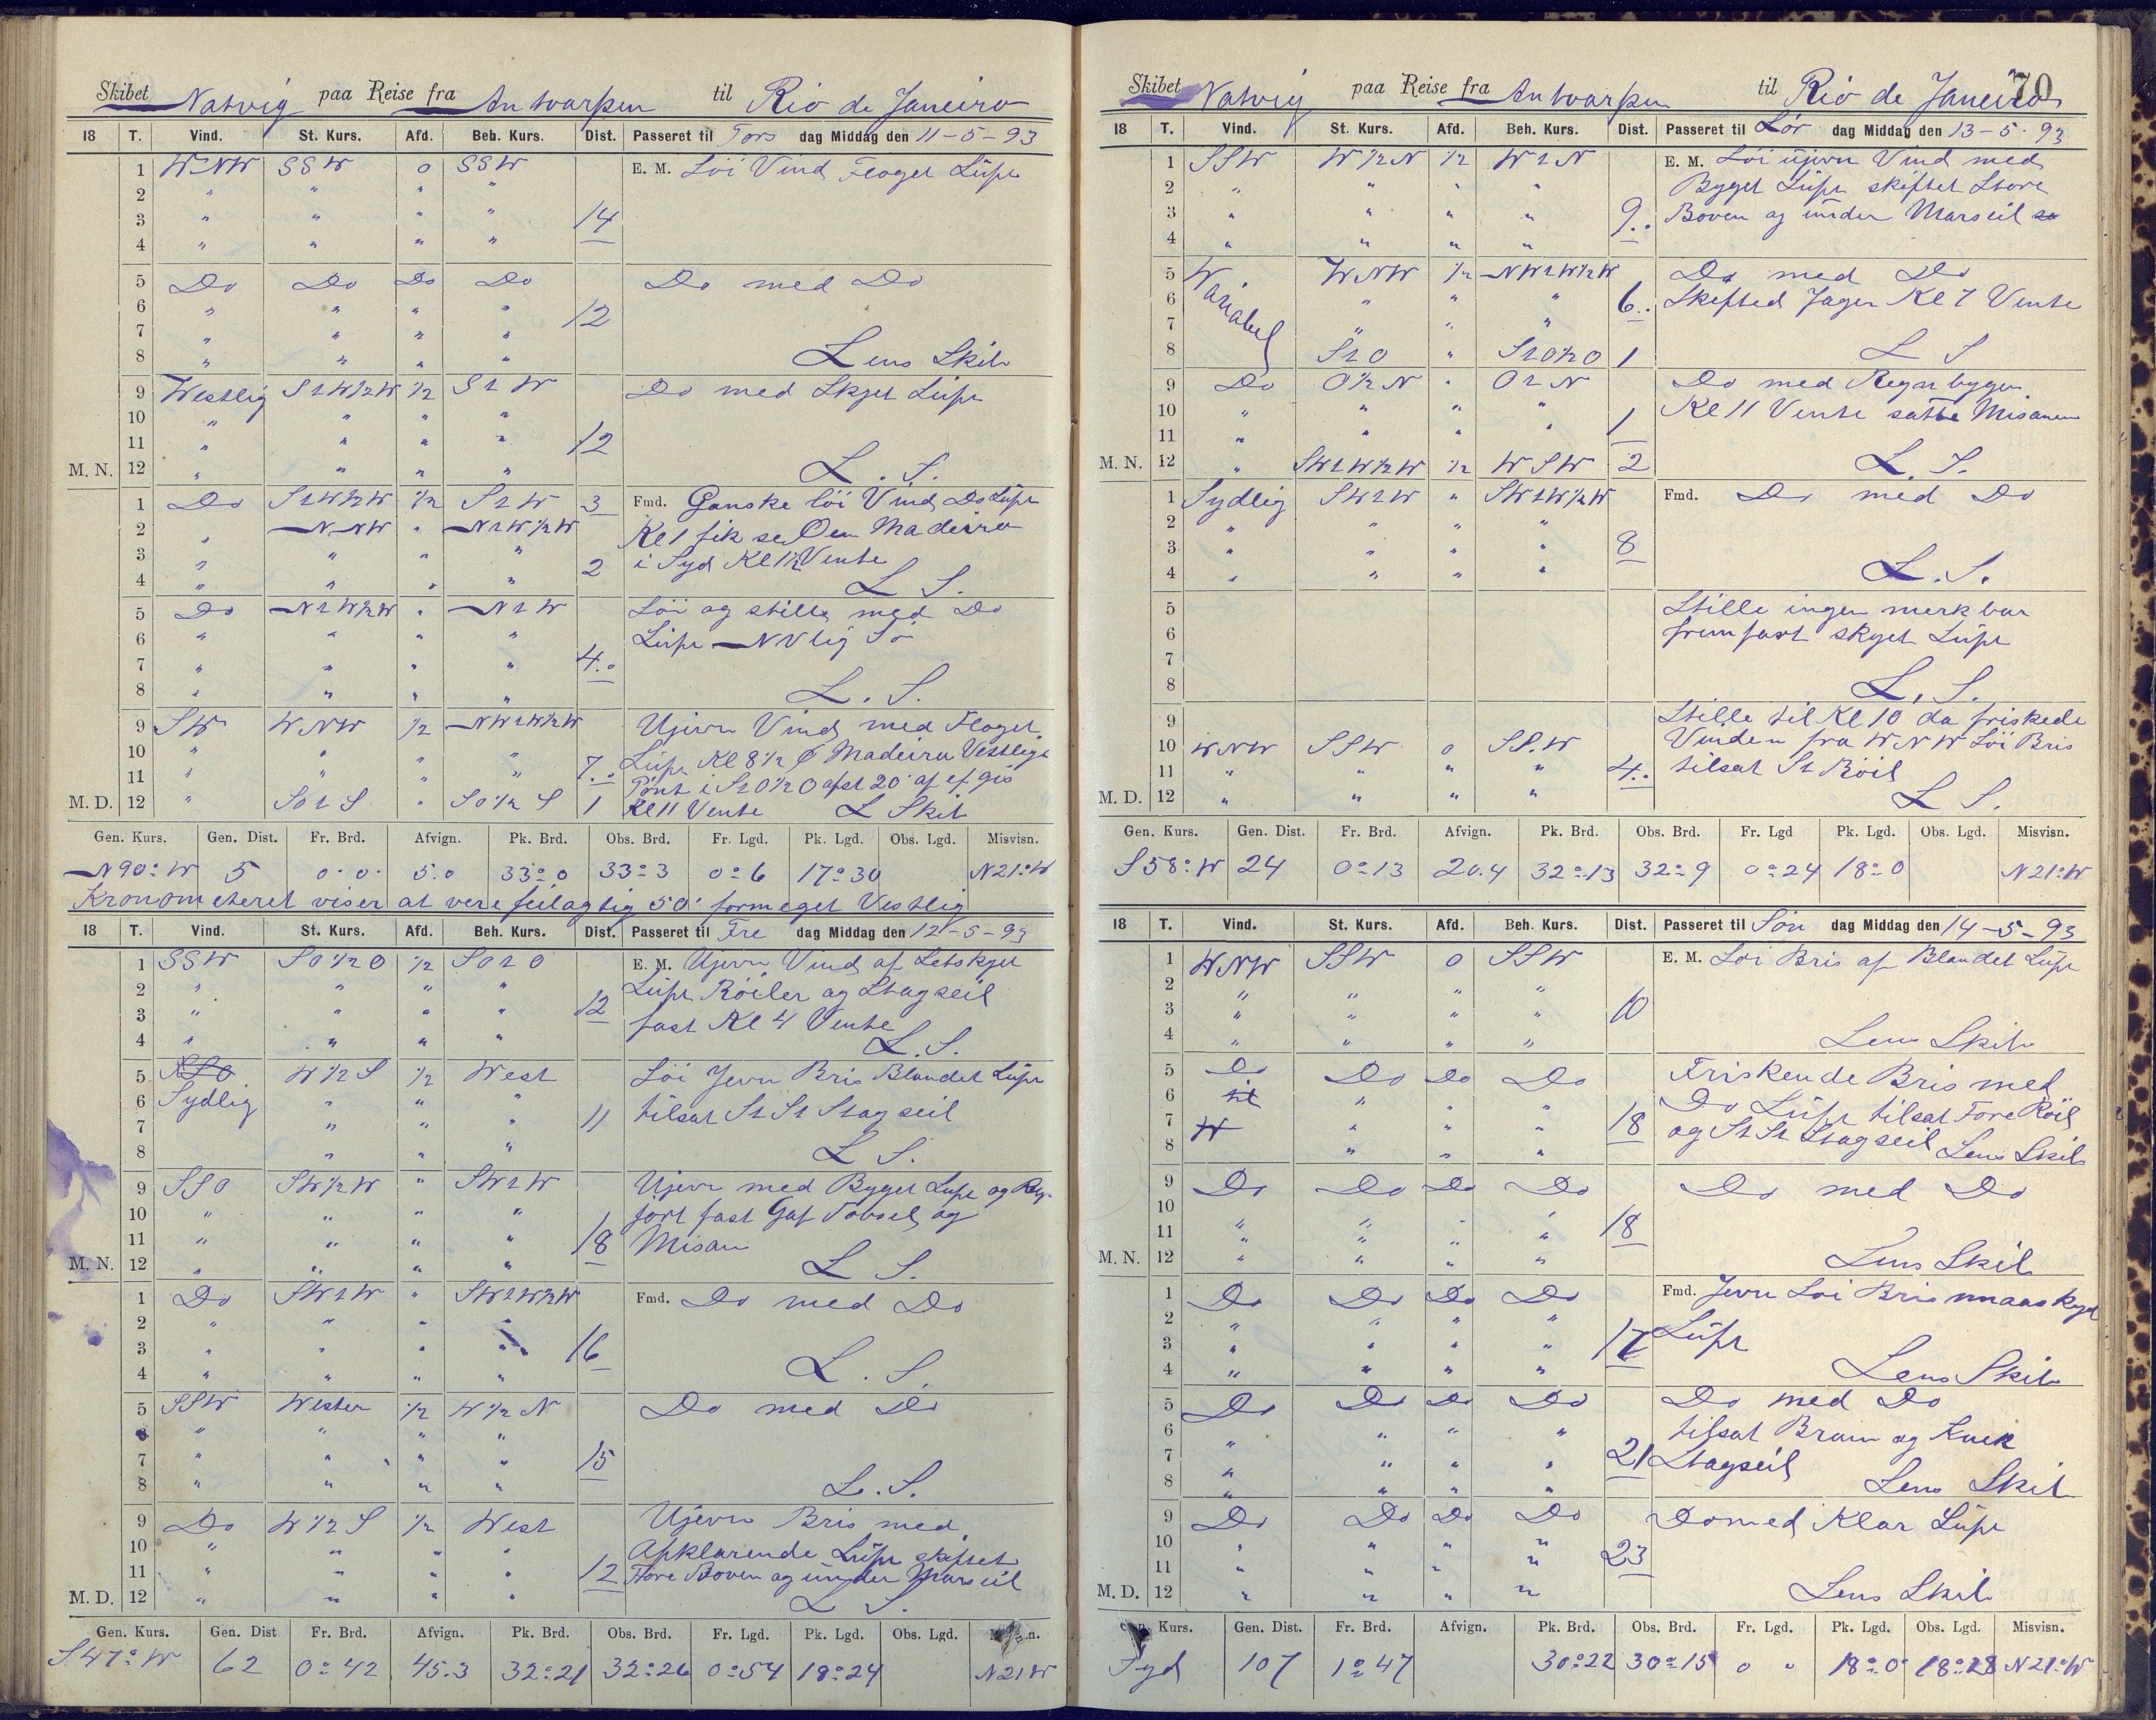 Skibet Natvig paa Reise fra Antvarpen til Rio de Janeiro
18 T. Vind. St. Kurs. Afd. Beh. Kurs. Dist. Passeret til Tors dag Middag den 11-5-93
1 WNW SSW 0 SSW E. M. Löi Vind Floget Lüft
2 " " " "
3 " " " " 14
4 " " " "
5 Do Do Do Do Do med Do
6 " " " " 12
7 " " " "
8 " " " " Lens Skib
9 Westlig S1W½W ½ S1W Do med Skyet Lüft
10 " " " "
11 " " " " 12
M. N. 12 " " " " L. S.
1 Do S1W½W ½ S1W 3 Fmd. Ganske löi Vind Do Lüft
2 " NNW " N1W½W Kl 1 fik se Öen Madeira
3 " " " " 2 i Syd Kl 1½ Vente
4 " " " " L S.
5 Do N1W½W " N1W Löi og stille med Do
6 " " " " Lüft NVlig Sö
7 " " " " 4.
8 " " " " L. S.
9 SW WNW ½ NW1W½W Ujevn Vind med Floget
10 " " " " 7. Lüft Kl 8½ Madeira Vestlige
11 " " " " Pönt i S1O½O afst 20' af ef gis
M. D. 12 " SO1S " SO½S 1 Kl 11 Vente L Skib
Gen. Kurs. Gen. Dist. Fr. Brd. Afvign. Pk. Brd. Obs. Brd. Fr. Lgd. Pk. Lgd. Obs. Lgd. Misvisn.
N90°W 5 0.0. 5.0 33°0 33°3 0°6 17°30 N21°W
Kronometeret viser at vere feilagtig 50' formeget Vestlig
18 T. Vind. St. Kurs. Afd. Beh. Kurs. Dist. Passeret til Fre dag Middag den 12-5-93
1 SSW SO½O ½ SO1O E. M. Ujevn Vind af Letskyet
2 " " " " Lüft Röiler og Stagseil
3 " " " " 12 fast Kl 4 Vente
4 " " " " L. S.
5 SSO W½S ½ West Löi Jevn Bris Blandet Lüft
6 Sydlig " " " tilsat St St Stagseil
7 " " " 11
8 " " " L S.
9 SSO SW½W " SW1W Ujevn med Byget Lüft og Reg-
10 " " " " fört fast Gaf Topseil og
11 " " " " 18 Misan
M. N. 12 " " " " L S.
1 Do SW1W " SW1W½W Fmd. Do med Do
2 " " " "
3 " " " " 16
4 " " " " L. S.
5 SSW Wester ½ W½N Do med Do
6 " " " "
7 " " " " 15
8 " " " " L. S.
9 Do W½S ½ West Ujevn Bris med
10 " " " " Apklarende Lüft skiftet
11 " " " " 12 Fore Boven og ünder Marseil
M. D. 12 " " " " L S.
Gen. Kurs. Gen. Dist Fr. Brd. Afvign. Pk. Brd. Obs. Brd. Fr. Lgd. Pk. Lgd. Obs. Lgd. n.
S47°W 62 0°42 45.3 32°21 32°26 0°54 18°24 N21W
Skibet Natvig paa Reise fra Antvarpen til Rio de Janeiro 70
18 T. Vind. St. Kurs. Afd. Beh. Kurs. Dist. Passeret til Lör dag Middag den 13-5-93
1 SSW W½N ½ W1N E. M. Löi üjevn Vind med
2 " " " " Byget Lüft skiftet Store
3 " " " " 9. Boven og ünder Marseil
4 " " " "
5 Variabel WNW ½ NW1W½W Do med Do
6 " " " 6. Skifted Jager Kl 7 Vente
7 " " "
8 S1O " S1O½O 1 L S
9 Do O½N " O1N Do med Regn bygen
10 " " " " Kl 11 Vente satte Misanen
11 " " " " 1
M. N. 12 " SW1W½W ½ WSW 2 L. S.
1 Sydlig SW1W " SW1W½W Fmd. Do med Do
2 " " " "
3 " " " " 8
4 " " " " L. S.
5 Stille ingen merkbar
6 fremfart skyet Lüft
7
8 L. S.
9 Stille til Kl 10 da friskede
10 WNW SSW 0 SS.W Vinden fra WNW Löi Bris
11 " " " " 4. tilsat St Röil
M. D. 12 " " " " L S.
Gen. Kurs. Gen. Dist. Fr. Brd. Afvign. Pk. Brd. Obs. Brd. Fr. Lgd Pk. Lgd. Obs. Lgd. Misvisn.
S58°W 24 0°13 20.4 32°13 32°9 0°24 18°0 N21°W
18 T. Vind. St. Kurs. Afd. Beh. Kurs. Dist. Passeret til Sön dag Middag den 14-5-93
1 WNW SSW 0 SSW E. M. Löi Bris af Blandet Lüft
2 " " " "
3 " " " " 10
4 " " " " Lens Skib
5 Do Do Do Do Friskende Bris med
6 til " " " Do Lüft tilsat Fore Röil
7 W " " " 18 og St St Stagseil
8 " " " Lens Skib
9 Do Do Do Do Do med Do
10
11 " " " " 18
M. N. 12 " " " " Lens Skib
1 Do Do Do Do Fmd. Jevn Löi Bris smaaskyet
2 " " " " Lüft
3 " " " " 17
4 " " " " Lens Skib
5 Do Do Do Do Do med Do
6 " " " " tilsat Bram og Knek
7 " " " " 21 Stagseil
8 " " " " Lens Skib
9 Do Do Do Do Do med Klar Lüft
10 " " " " 23
11 " " " "
M. D. 12 " " " " Lens Skib
Kurs. Gen. Dist. Fr. Brd. Afvign. Pk. Brd. Obs. Brd. Fr. Lgd. Pk. Lgd. Obs. Lgd. Misvisn.
Syd 107 1°47 30°22 30°15 0 " 18°0' 18°28 N21°W